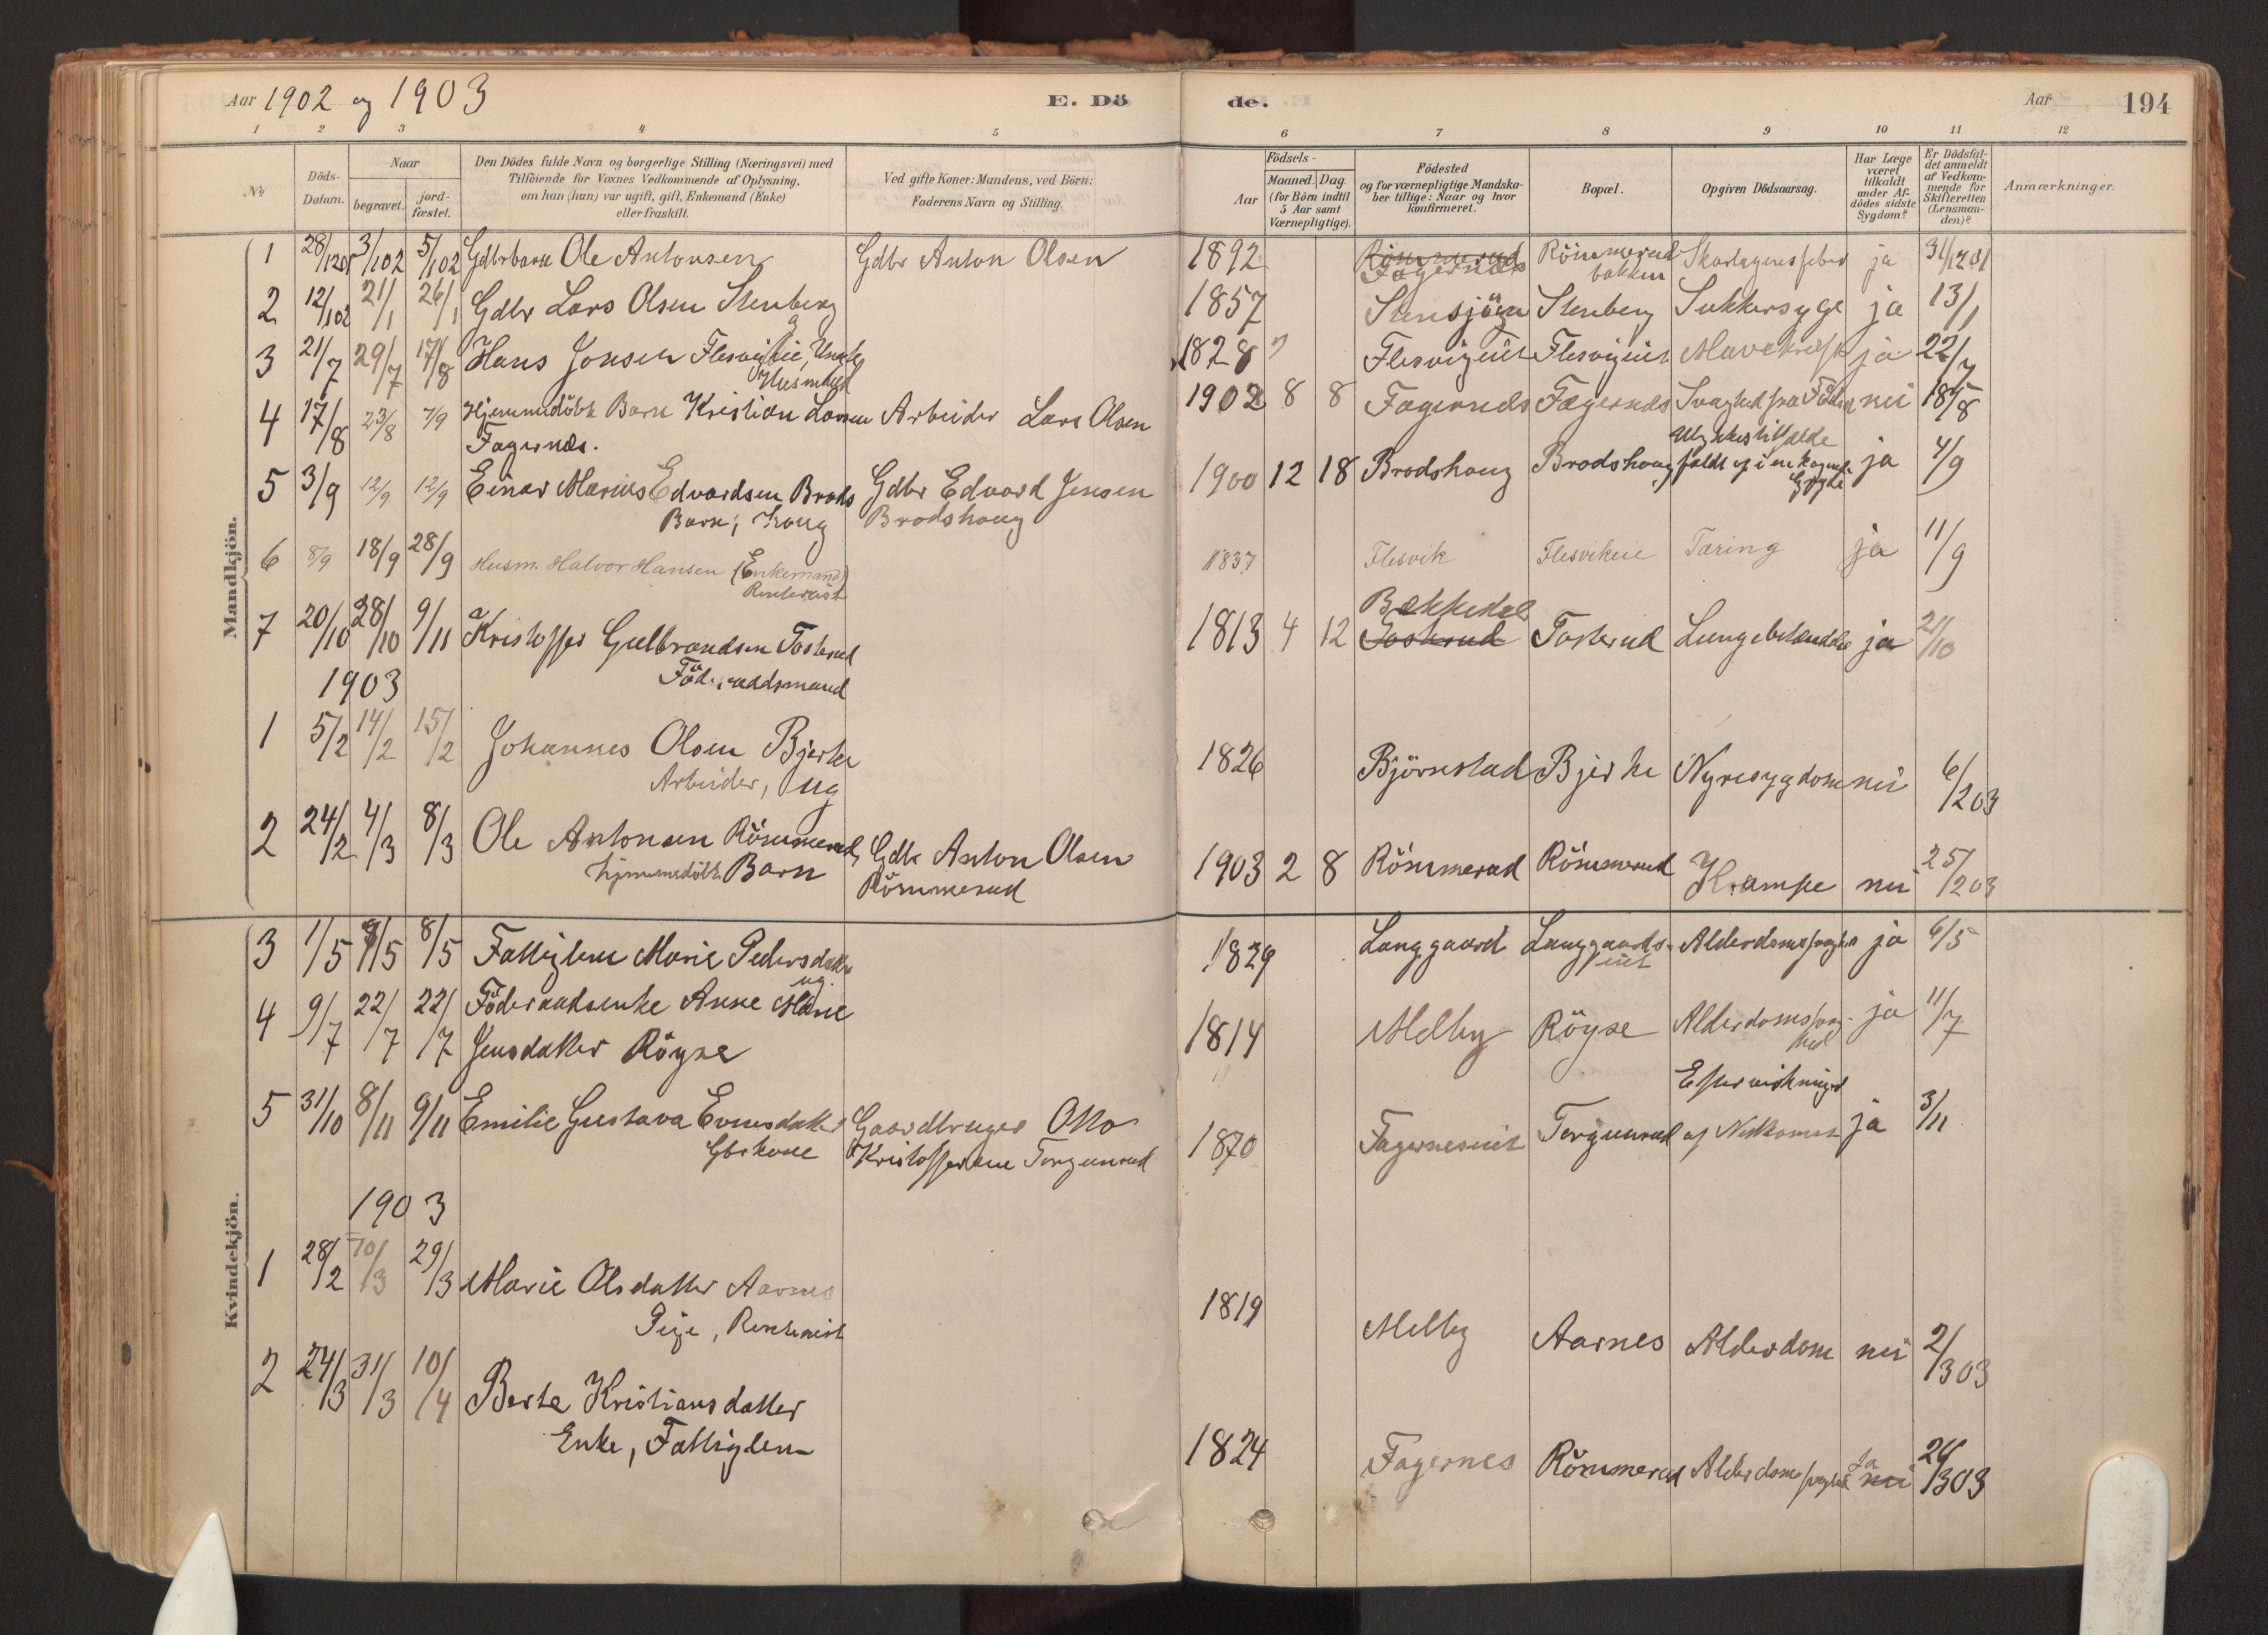 Aar 1902 og 1903
E. Dö
de.
Aar
194
1 2 3 4 5 6 7 8 9 10 11 12
No
Döds-
Datum.
Naar
begravet.
jord-
fæstet.
Den Dödes fulde Navn og borgerlige Stilling (Næringsvei) med
Tilföiende for Voxnes Vedkommende af Oplysning,
om han (hun) var ugift, gift, Enkemand (Enke)
eller fraskilt.
Ved gifte Koner: Mandens, ved Börn:
Faderens Navn og Stilling.
Födsels-
Aar
Maaned. Dag.
(for Börn indtil
5 Aar samt
Værnepligtige).
Födested
og for værnepligtige Mandska-
ber tillige: Naar og hvor
konfirmeret.
Bopæl.
Opgiven Dödsaarsag.
Har Læge
været
tilkaldt
under Af-
dödes sidste
Sygdom?
Er Dödsfal-
det anmeldt
af Vedkom-
mende for
Skifteretten
(Lensman-
den)?
Anmærkninger.
Mandkjön.
1 28/12 01 3/1 02 5/1 02 Gdbrbarn Ole Antonsen Gdbr Anton Olsen 1892 Römmerud Fagernæs Römmerud bakken Skarlagensfeber ja 31/12 01
2 12/1 02 21/1 26/1 Gdbr Lars Olsen Stenberg g 1857 Stensjöen Stenberg Sukkersyge ja 13/1
3 21/7 29/7 17/8 Hans Jonsen Flesvigeie,
Husmand
1828 Flesvigeiet Flesvigeiet Mavekræft ja 22/7
4 17/8 23/8 7/9 Hjemmedöbt Barn Kristian Larsen Arbeider Lars Olsen 1902 8 8 Fagernæs Fagernæs Svaghed fra Föds nei 18/8
Fagernæs.
5 3/9 12/9 12/9 Einar Marius Edvardsen Brods Gdbr Edvard Jensen 1900 12 18 Brodshaug Brodshaug Ulykkestilfælde
faldt i en kogende
Gryde ja 4/9
Barn, haug Brodshaug
6 8/9 18/9 28/9 Husm. Halvor Hansen (Enkemand) 1837 Flesvik Flesvikeie Tæring ja 11/9
7 20/10 28/10 9/11 Kristoffer Gulbrandsen Tosterud 1813 4 12 Bækkedal Tosterud Tosterud Lungebetændelse ja 21/10
Föderaadsmand
1903
1 5/2 14/2 15/2 Johannes Olsen Bjerke 1826 Björnstad Bjerke Nyresygdom nei 6/2 03
Arbeider, ug
2 24/2 4/3 8/3 Ole Antonsen Römmerud, Gdbr Anton Olsen 1903 2 8 Römmerud Römmerud Krampe nei 25/2 03
hjemmedöbt Barn Römmerud
Kvindekjön.
3 1/5 8/5 Fattiglem Marie Pedersdatter 1829 Langgaard Langgaards-
eiet Alderdomssvaghed ja 6/5
ug.
4 9/7 22/7 22/7 Föderaadsenke Anne Marie 1814 Melby Röyse Alderdomssvag-
hed ja 11/7
Jensdatter Röyse
5 31/10 8/11 9/11 Emilie Gustava Evensdatter Gaardbruger Otto 1870 Fagerneseiet Torgunrud Eftervirkninger
af Nedkomst ja 3/11
Gbrkone Kristoffersen Torgunrud
1903
1 28/2 10/3 29/3 Marie Olsdatter Aarnes 1819 Melby Aarnes Alderdom nei 2/3 03
Pige, Rentenist
2 24/3 31/3 10/4 Berte Kristiansdatter 1824 Fagernes Römmerud Alderdomssvaghed Ja nei 26/3 03
Enke, Fattiglem